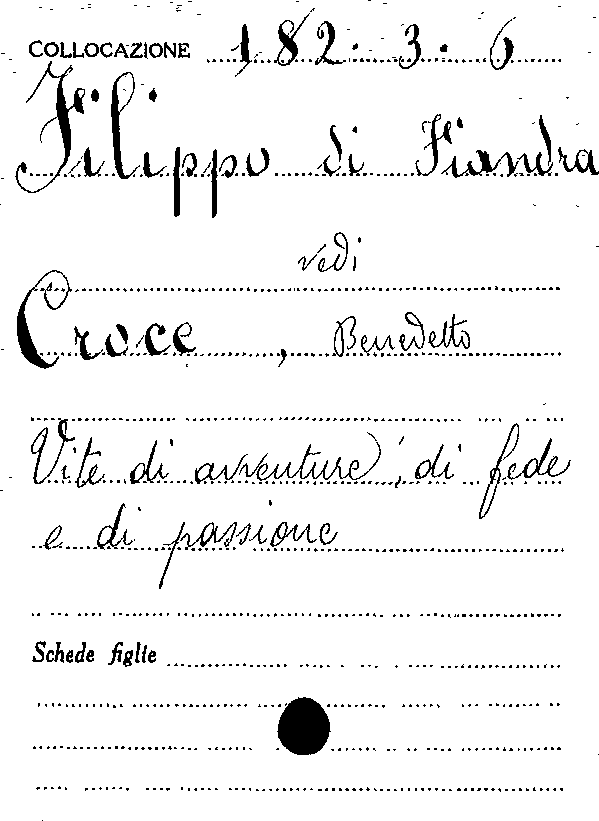 COLLOCAZIONE 182. 3. 6
Filippo di Fiandra
vedi
Croce, Benedetto
Vite di avventure, di fede
e di passione
Schede figlie